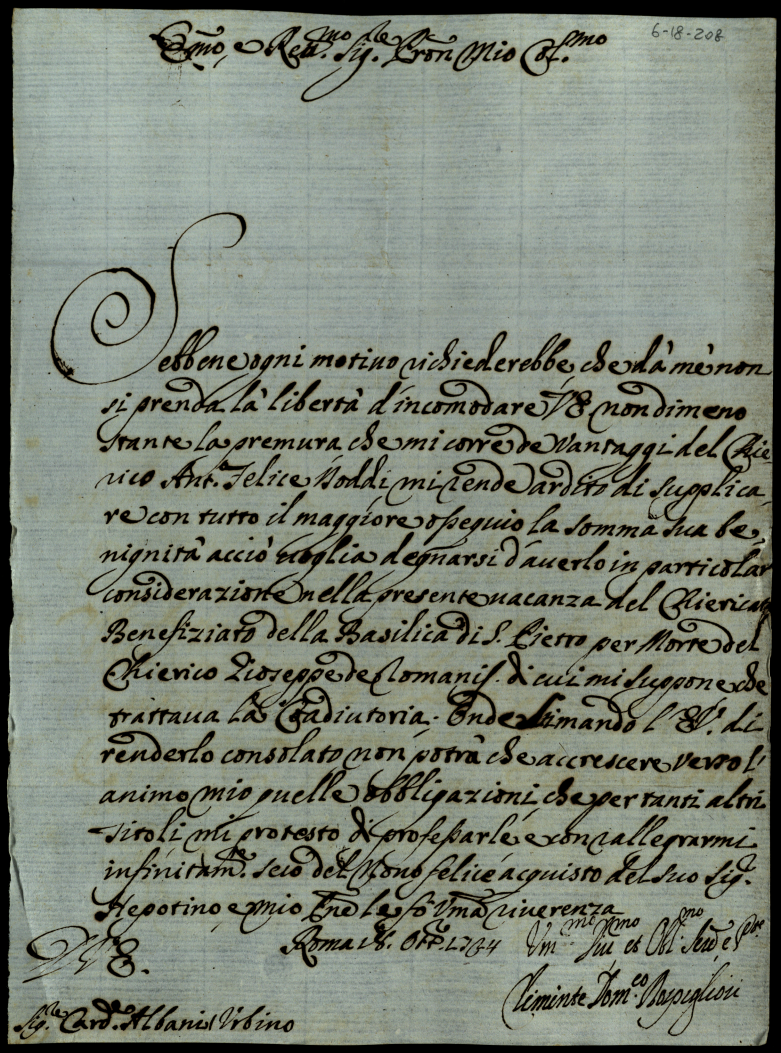 6-18-208
Em̃o, e Reu.mo Sig.re Pron Mio Col.mo
Sebbene ogni motiuo richiederebbe, che dà mè non
si prenda là libertà d'incomodare V E nondimeno
stante la premura che mi corre de Vantaggi del Chie,
rico Ant. Felice Noddi mi rende ardito di supplica,
re con tutto il maggiore ossequio la somma sua be,
nignità acciò uoglia degnarsi d'auerlo in particolar
considerazione nella presente uacanza del Chiericato
Benefiziato della Basilica di S. Pietro per Morte del
Chierico Gioseppe de Romanis. di cui mi suppone che
trattaua la Coadiutoria. Onde stimando l'E V. di
renderlo consolato non potrà che accrescere verso l'
animo mio quelle obbligazioni, che per tanti altri
Titoli mi protesto di professarle e con rallegrarmi
infinitam.e seco del Nono felice acquisto del suo Sig.
Nepotino e mio Pñe le fò Vmã riuerenza
D V E. Roma Ott. 1734 Vm.mo et Obl.mo
Clemente Dom.co Rospigliosi
Sig.re Card.le Albani Urbino